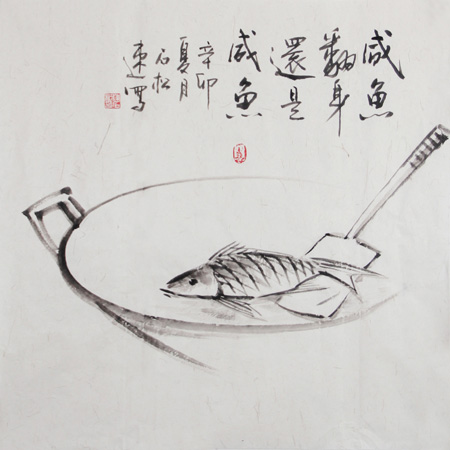 咸鱼
翻身
還是
咸鱼
辛卯
夏月
石松
速寫